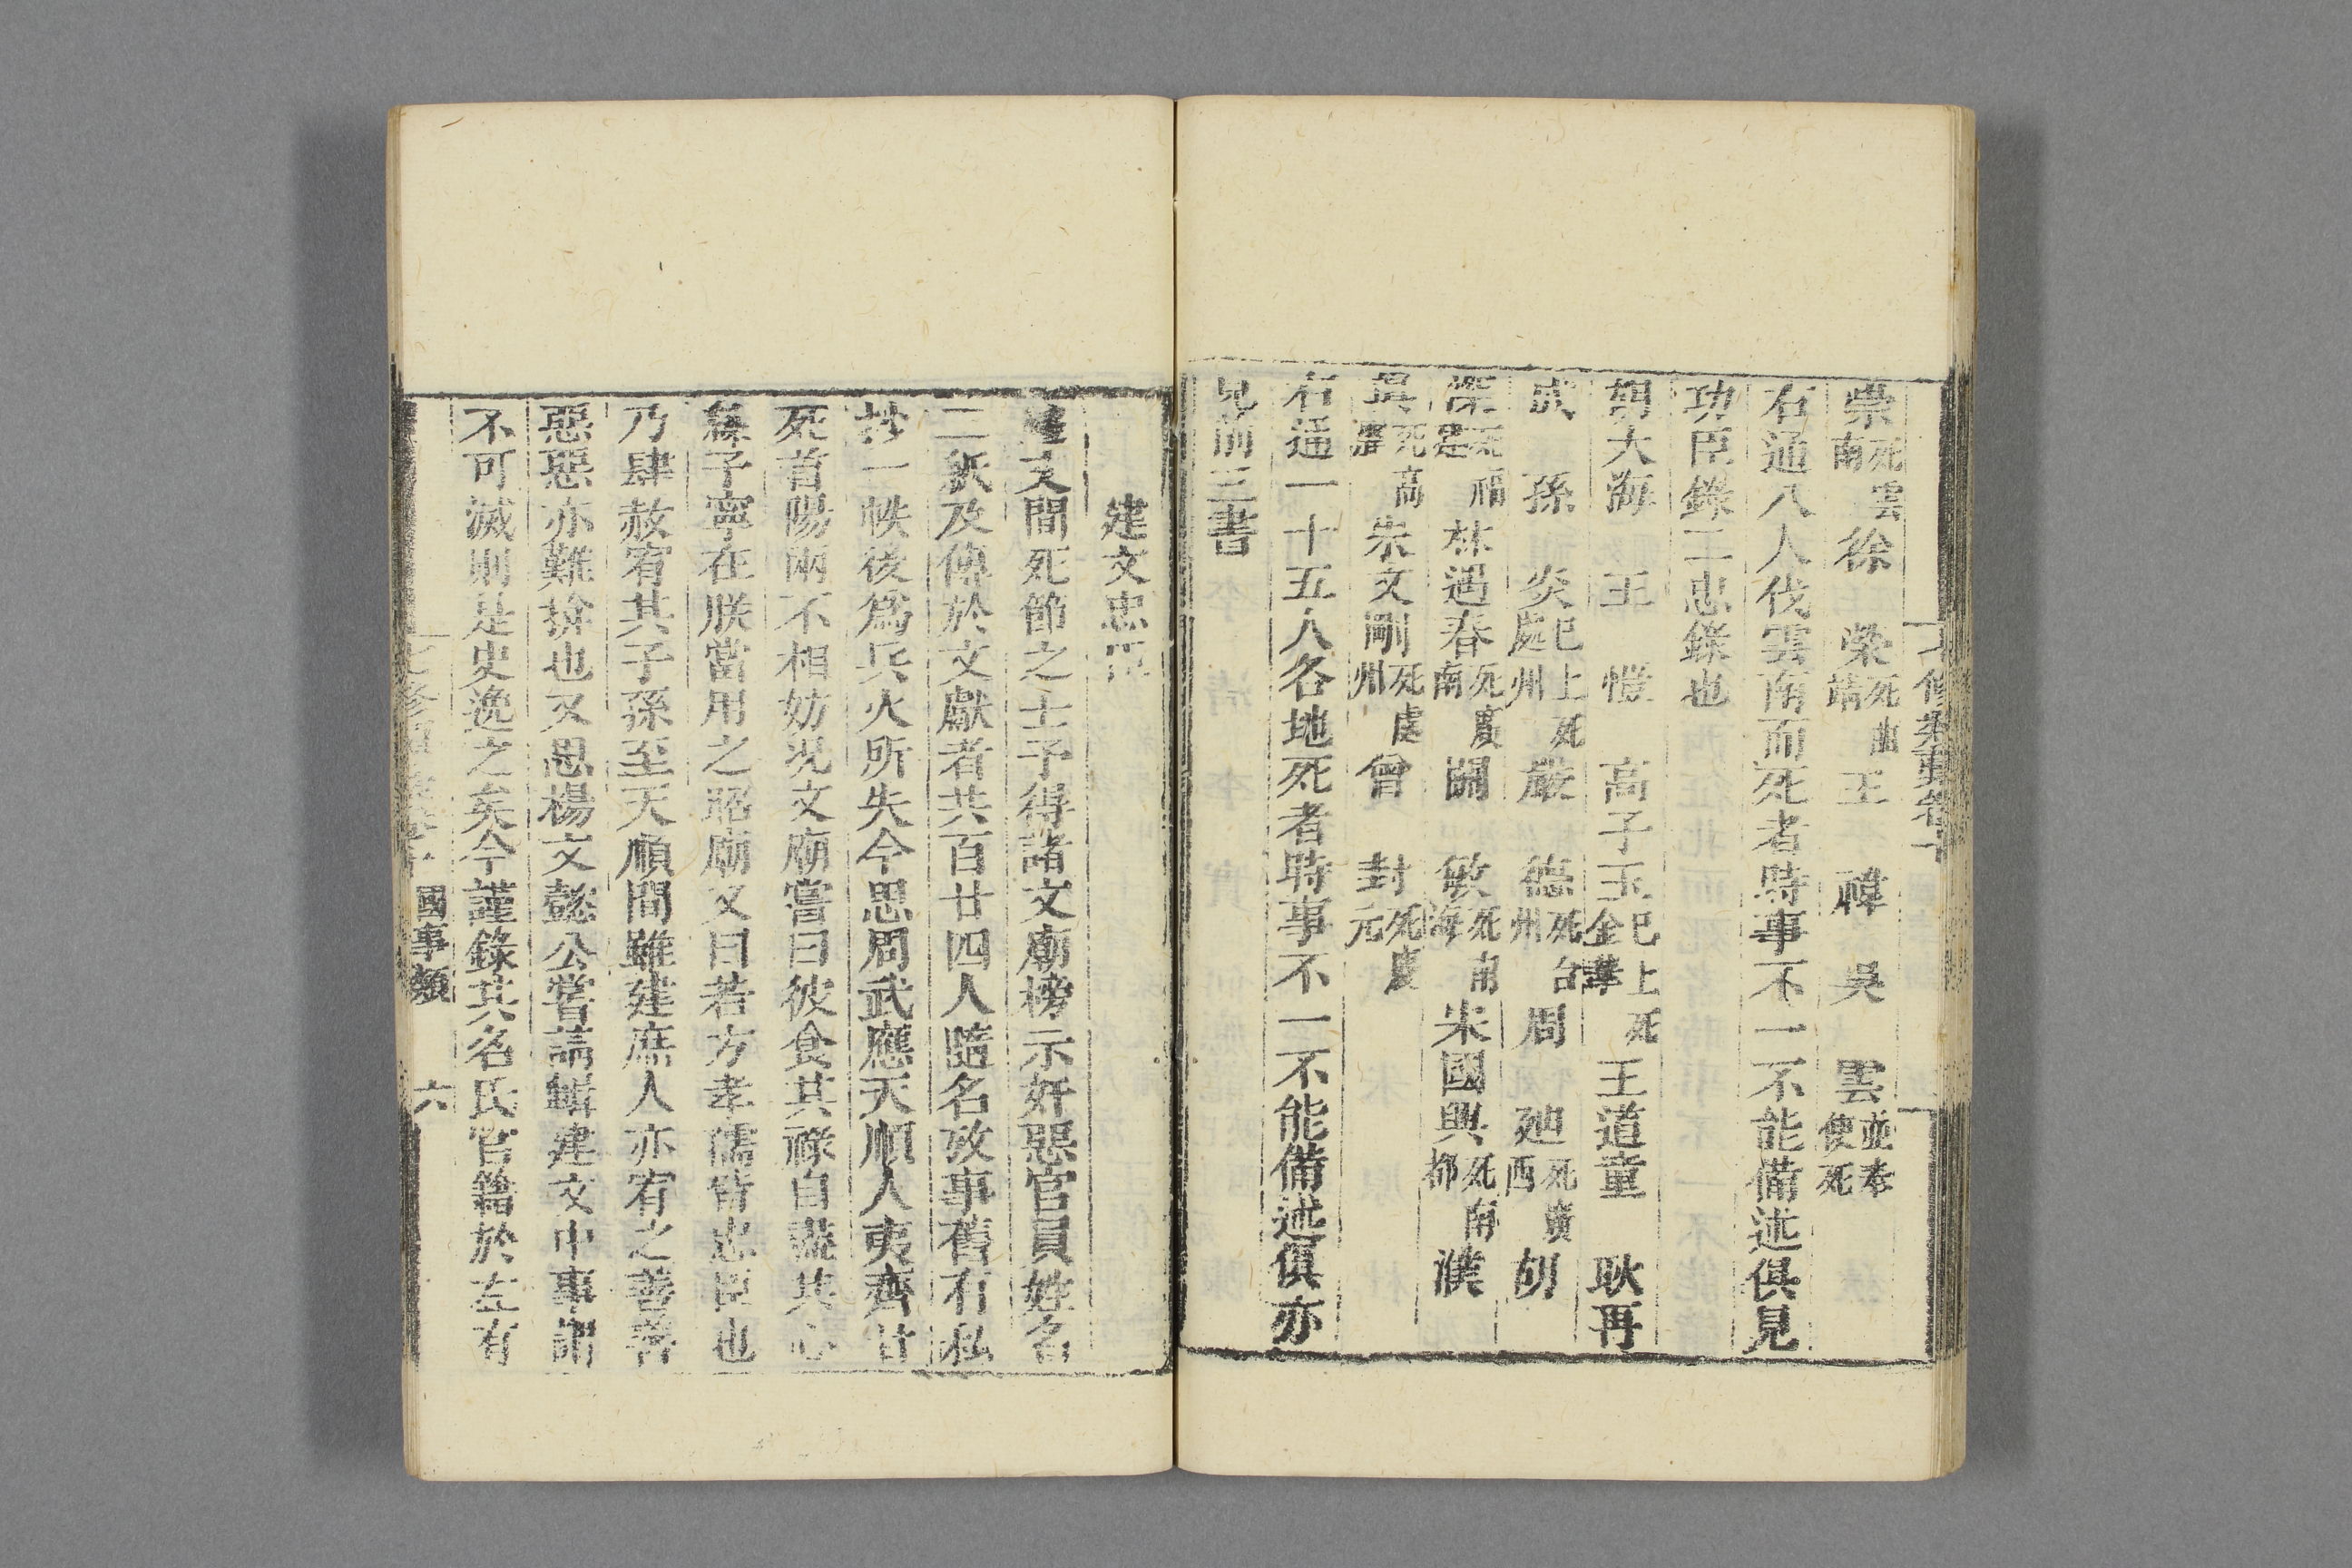 崇死雲南徐　榮死曲靖王　禕　吳　雲並奉使死
右通八人伐雲南而死者時事不一不能備述俱見
功臣錄二忠錄也
胡大海　王　愷　高子玉巳上死金華王道童　耿再
成　孫　炎巳上死處州嚴　德死台州周　廸死廣西胡
深死福建林遇春死慶南關　敏死南海宋國興死南都濮
眞死高麗朱文剛死處州曾　封死慶元
右通一十五人各地死者時事不一不能備述俱亦
見前三書
建文忠臣
文間死節之士予得諸文廟榜示奸惡官員姓名
二紙及傳於文獻者共百廿四人隨名攷事舊有私
抄一帙後爲兵火所失今思周武應天順人夷齊甘
死首陽兩不相妨况文廟嘗曰彼食其祿自盡其心
練子寧在朕當用之昭廟又曰若方孝儒皆忠臣也
乃肆赦宥其子孫至天順間雖建庶人亦宥之善善
惡惡亦難揜也又思楊文懿公嘗請輯建文中事謂
不可滅則是史逸之矣今謹錄其名氏官籍於左有
國事類　六